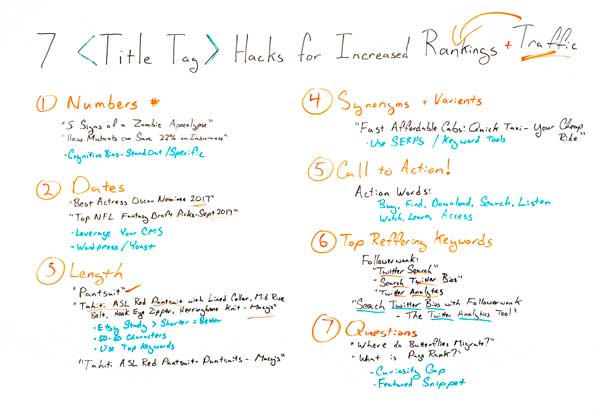 7 <Title Tag> Hacks for Increased Rankings + Traffic
1 Numbers #
"5 Signs of a Zombie Apocalypse"
"How Mutants can Save 22% on Insurance"
- Cognitive Bias - Stand Out / Specific
2 Dates
"Best Actress Oscar Nominee 2017"
"Top NFL Fantasy Draft Picks - Sept 2017"
- Leverage Your CMS
- Wordpress / Yoast
3 Length
"Pantsuit"
"Tahiti ASL Red Pantsuit with Lined Collar, Mid Rise
Belt, Hook Eye Zipper, Herringbone Knit - Macy's"
- Etsy Study > Shorter = Better
- 50-60 Characters
- Use Top Keywords
"Tahiti ASL Red Pantsuit - Pantsuits - Macy's"
4 Synonyms + Varients
"Fast Affordable Cabs: Quick Taxi - Your Cheap
Ride"
- Use SERPS / Keyword Tools
5 Call to Action!
Action Words:
Buy, Find, Download, Search, Listen
Watch, Learn, Access
6 Top Reffering Keywords
Followerwonk:
"Twitter Search"
- Search Twitter Bios"
"Twitter Analytes
"Seach Twitter Bios with Followerwonk
- The Twitter Analytics Tool"
7 Questions
"Where do Butterflies Migrate?"
"What is Page Rank?"
- Curiosity Gap
- Featured Snippet